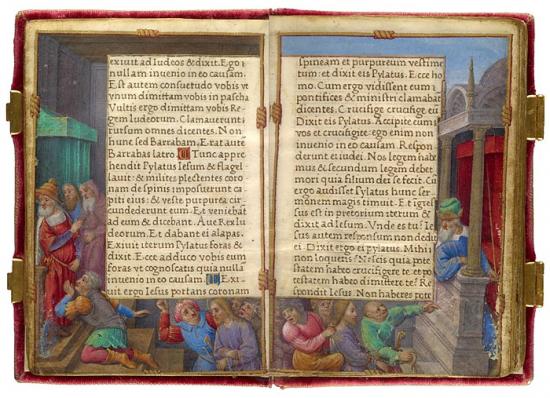 exiuit ad Iudeos & dixit. Ego
nullam inuenio in eo causam.
Est autem consuetudo vobis vt
vnum dimittam vobis in pascha
Vultis ergo dimittam vobis Re
gem Iudeorum. Clamauerunt
rursum omnes dicentes. Non
hunc sed Barrabam. Erat auté
Barrabas latro. Tunc appre
hendit Pylatus Iesum & flagel
lauit: & milites plectentes coro
nam de spinis imposuerunt ca
piti eius: & veste purpurea cir
cundederunt eum. Et veniebāt
ad eum & dicebant. Aue Rex Iu
deorum. Et dabant ei alapas.
Exiuit iterum Pylatus foras &
dixit. Ecce adduco vobis eum
foras vt cognoscatis quia nulla
inuenio in eo causam. Exi-
uit ergo Iesus portans coronam
spineam et purpureum vestime
tum: et dixit eis Pylatus. Ecce ho
mo. Cum ergo vidissent eum
pontifices & ministri clamabāt
dicentes. Crucifige crucifige eū
Dixit eis Pylatus. Accipite eum
vos et crucifigite: ego enim non
inuenio in eo causam. Respon
derunt ei iudei. Nos legem habe
mus & secundum legem debet
mori quia filium dei se fecit. Cū
ergo audisset Pylatus hunc ser
monem magis timuit. Et igres
sus est in pretorium iterum &
dixit ad Iesum. Vnde es tu? Ie
sus autem responsum non dedit
ei. Dixit ergo ei Pylatus. Mihi
non loqueris? Nescis quia pote
statem habeo crucifigere te: et po
testatem habeo dimittere te? Re
spondit Iesus. Non haberes pote